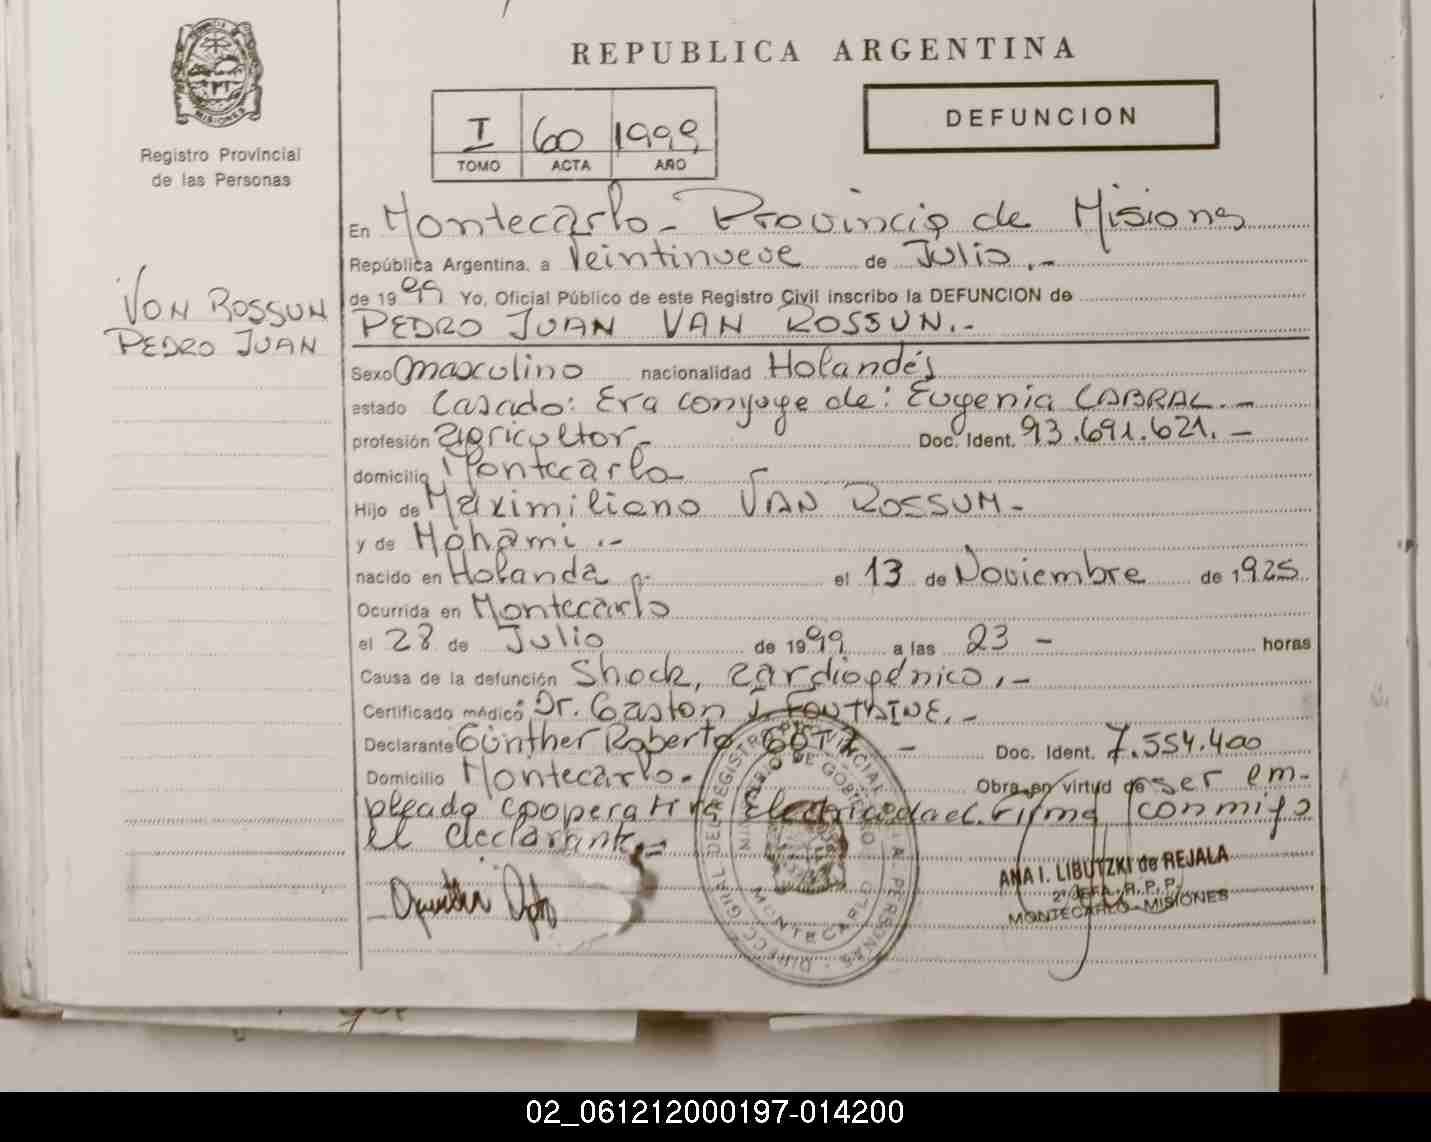 REPUBLICA ARGENTINA
MISIONES
Registro Provincial
de las Personas
I 60 1999
TOMO ACTA AÑO
DEFUNCION
VON ROSSUN
PEDRO JUAN
En Montecarlo - Provincia de Misiones
República Argentina, a Veintinueve de Julio.-
de 1999 Yo, Oficial Público de este Registro Civil inscribo la DEFUNCION de
PEDRO JUAN VAN ROSSUN.-
Sexo masculino nacionalidad Holandés
estado Casado: Era conyuge de: Eugenia CABRAL.-
profesión Agricultor- Doc. Ident. 93.691.621.-
domicilio Montecarlo
Hijo de Maximiliano VAN ROSSUM-
y de Mohami.-
nacido en Holanda el 13 de Noviembre de 1925
Ocurrida en Montecarlo
el 28 de Julio de 1999 a las 23 - horas
Causa de la defunción Shock, cardiogénico.-
Certificado médico Dr. Gaston J. FONTAINE.-
Declarante Günther Roberto GOTZ - Doc. Ident. 7.554.400
Domicilio Montecarlo. Obra en virtud de ser em-
pleado cooperativa Electricidad. Firma conmigo
el declarante.=
DIRECC. GRAL. DE REGISTRO PROVINCIAL DE LAS PERSONAS
MINISTERIO DE GOBIERNO
MONTECARLO
ANA I. LIBUTZKI de REJALA
2º JEFA. R. P. P.
MONTECARLO - MISIONES
02_061212000197-014200